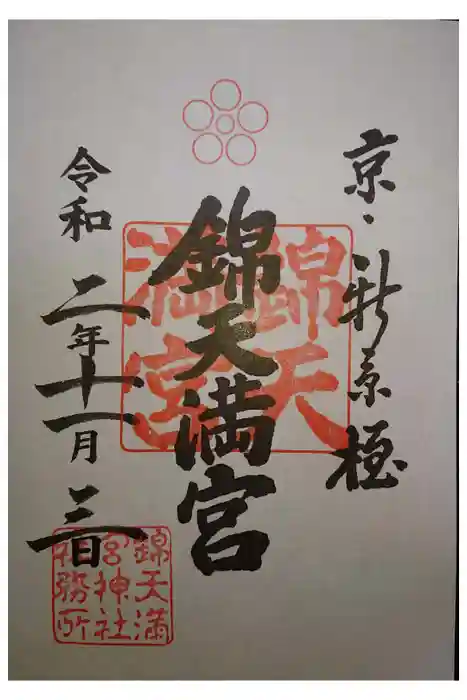 京・新京極
錦天満宮
錦天
満宮
令和二年十一月三日
錦天満
宮神社
社務所